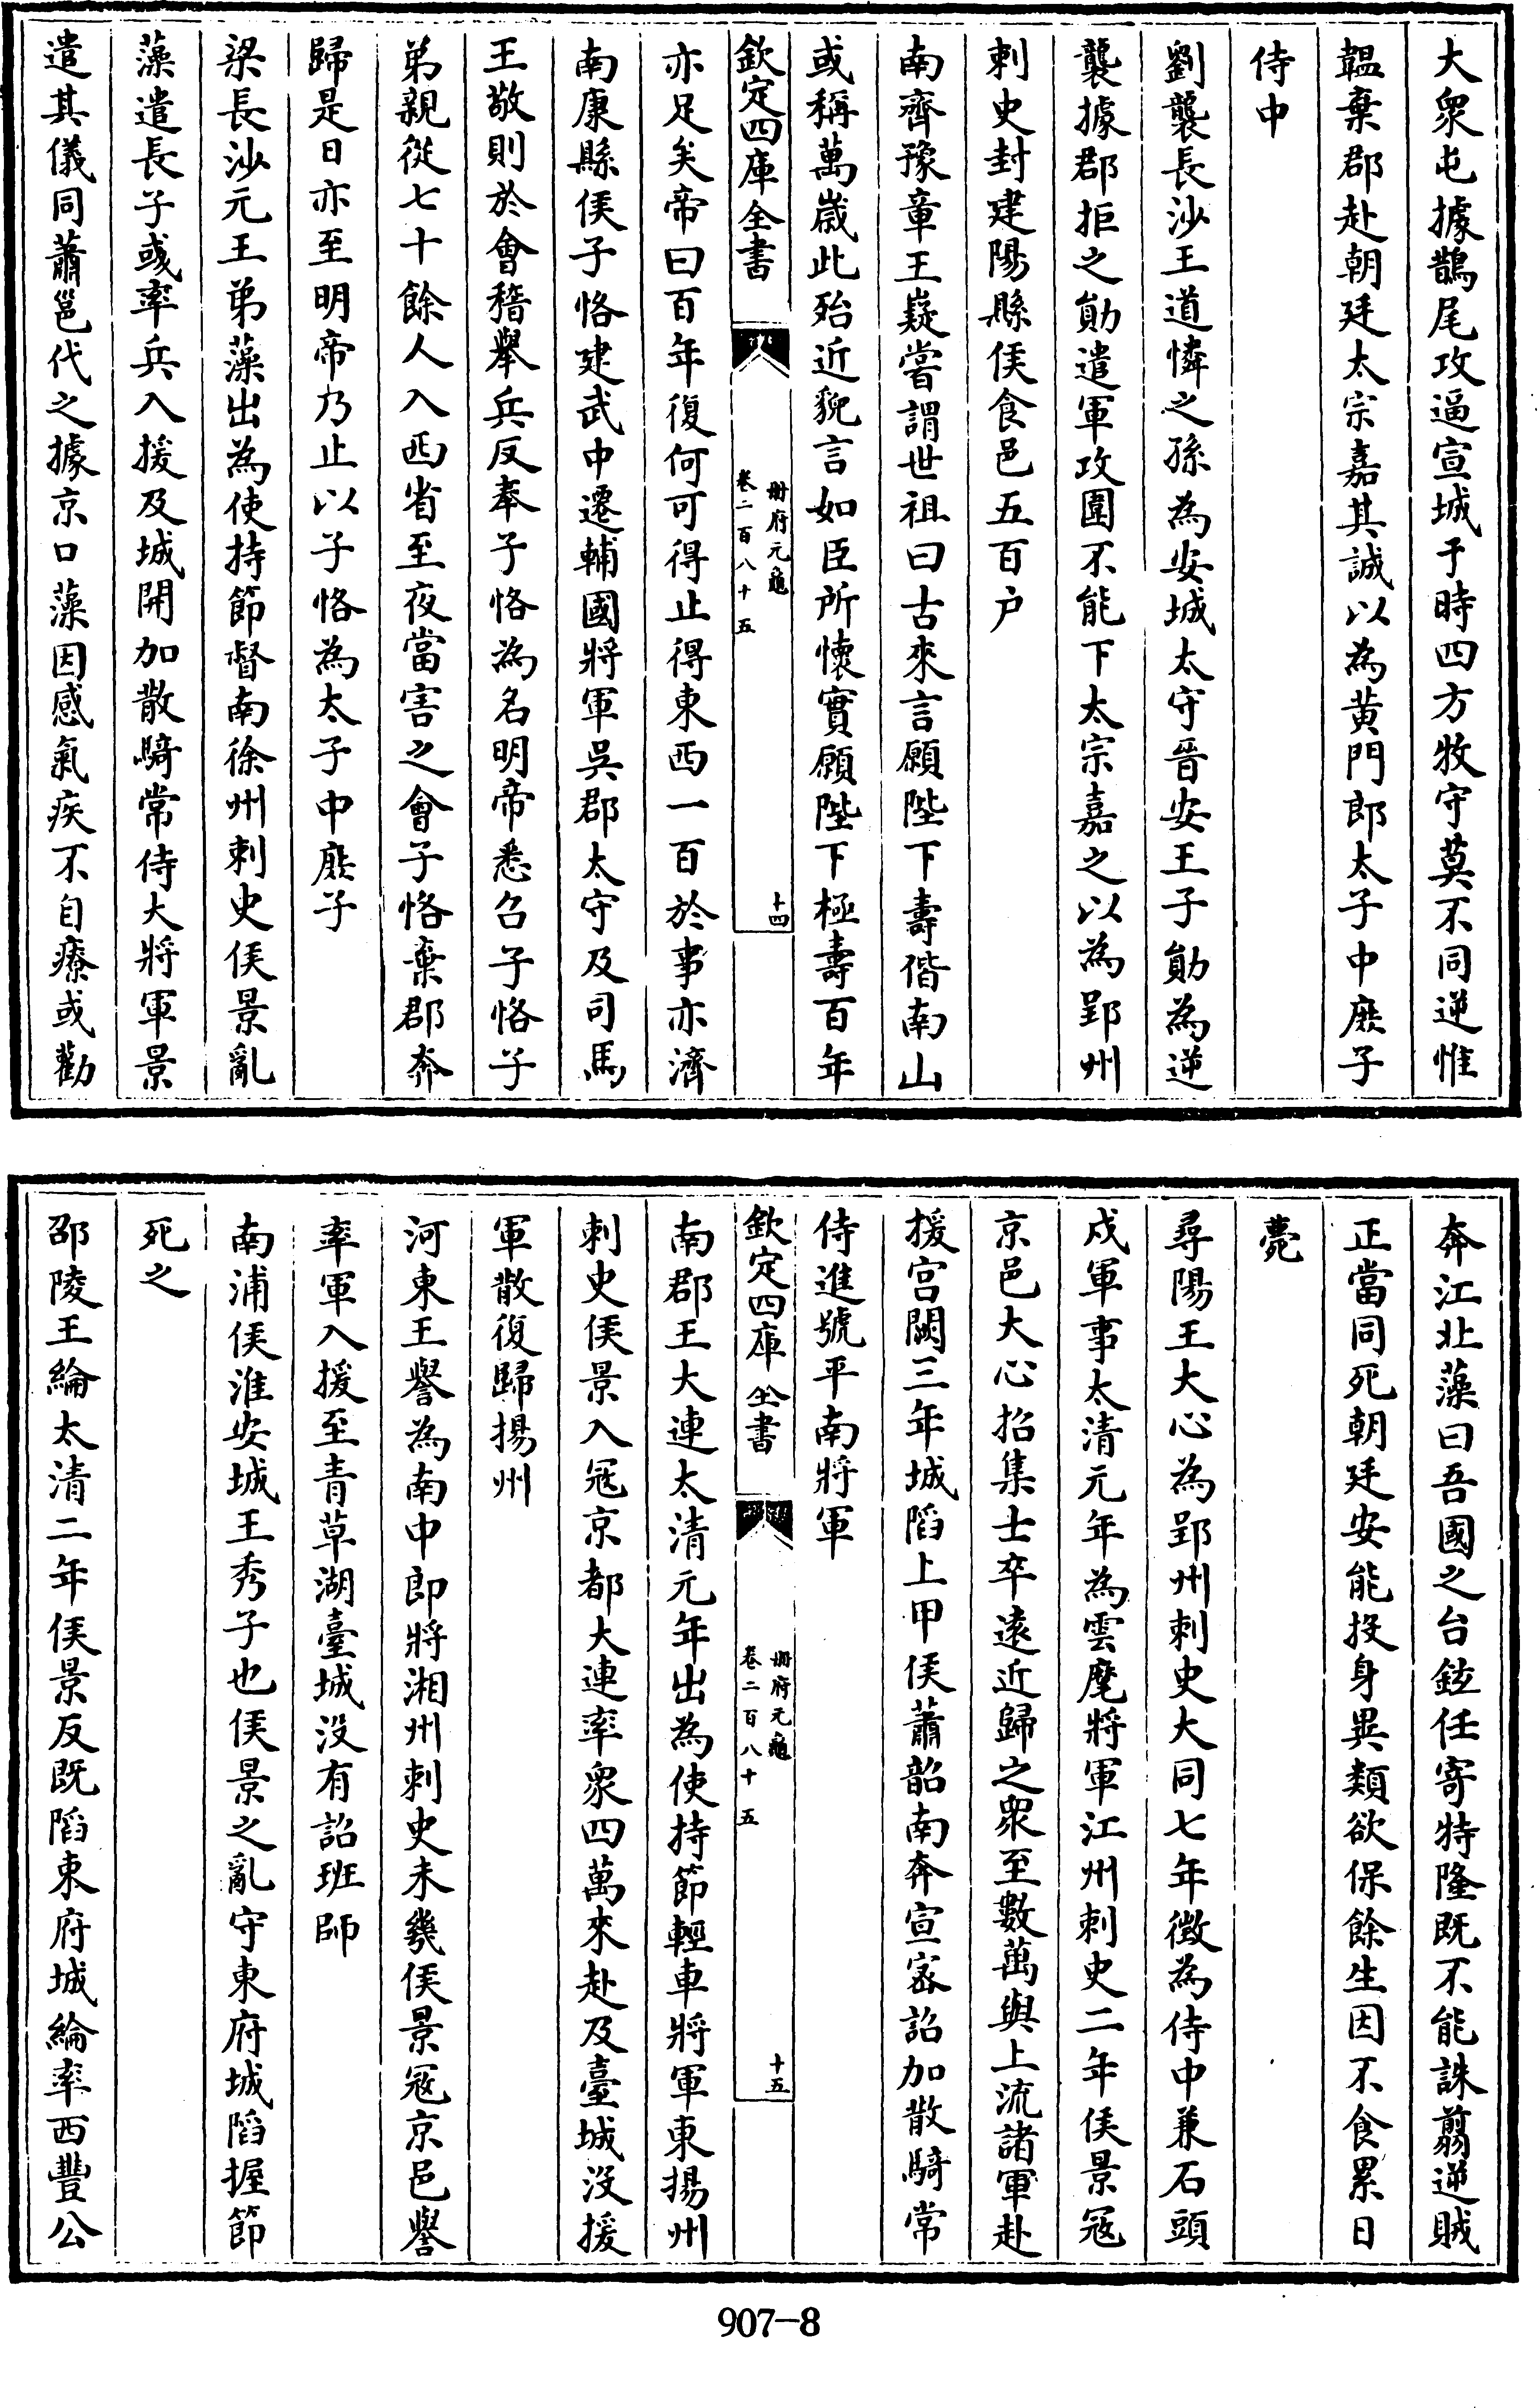 大衆屯據鵲尾攻逼宣城于時四方牧守莫不同逆惟
韞棄郡赴朝廷太宗嘉其誠以為黄門郎太子中庶子
侍中
劉襲長沙王道憐之孫為安城太守晉安王子勛為逆
襲據郡拒之勛遣軍攻圍不能下太宗嘉之以為郢州
刺史封建陽縣侯食邑五百户
南齊豫章王嶷嘗謂世祖曰古來言願陛下壽偕南山
或稱萬歲此殆近貌言如臣所懷實願陛下極壽百年
欽定四庫全書
冊府元龜
卷二百八十五
十四
亦足矣帝曰百年復何可得止得東西一百於事亦濟
南康縣侯子恪建武中遷輔國將軍吳郡太守及司馬
王敬則於會稽舉兵反奉子恪為名明帝悉召子恪子
弟親從七十餘人入西省至夜當害之會子恪棄郡奔
歸是日亦至明帝乃止以子恪為太子中庶子
梁長沙元王弟藻出為使持節督南徐州刺史侯景亂
藻遣長子彧率兵入援及城開加散騎常侍大將軍景
遣其儀同蕭邕代之據京口藻因感氣疾不自療或勸
奔江北藻曰吾國之台鉉任寄特隆既不能誅翦逆賊
正當同死朝廷安能投身異類欲保餘生因不食累日
薨
尋陽王大心為郢州刺史大同七年徴為侍中兼石頭
戍軍事太清元年為雲麾將軍江州刺史二年侯景冦
京邑大心招集士卒遠近歸之衆至數萬與上流諸軍赴
援宫闕三年城䧟上甲侯蕭韶南奔宣宻詔加散騎常
侍進號平南將軍
欽定四庫全書
冊府元龜
卷二百八十五
十五
南郡王大連太清元年出為使持節輕車將軍東揚州
刺史侯景入冦京都大連率衆四萬來赴及臺城没援
軍散復歸揚州
河東王譽為南中郎將湘州刺史未幾侯景冦京邑譽
率軍入援至青草湖臺城没有詔班師
南浦侯淮安城王秀子也侯景之亂守東府城䧟握節
死之
邵陵王綸太清二年侯景反既䧟東府城綸率西豐公
907-8